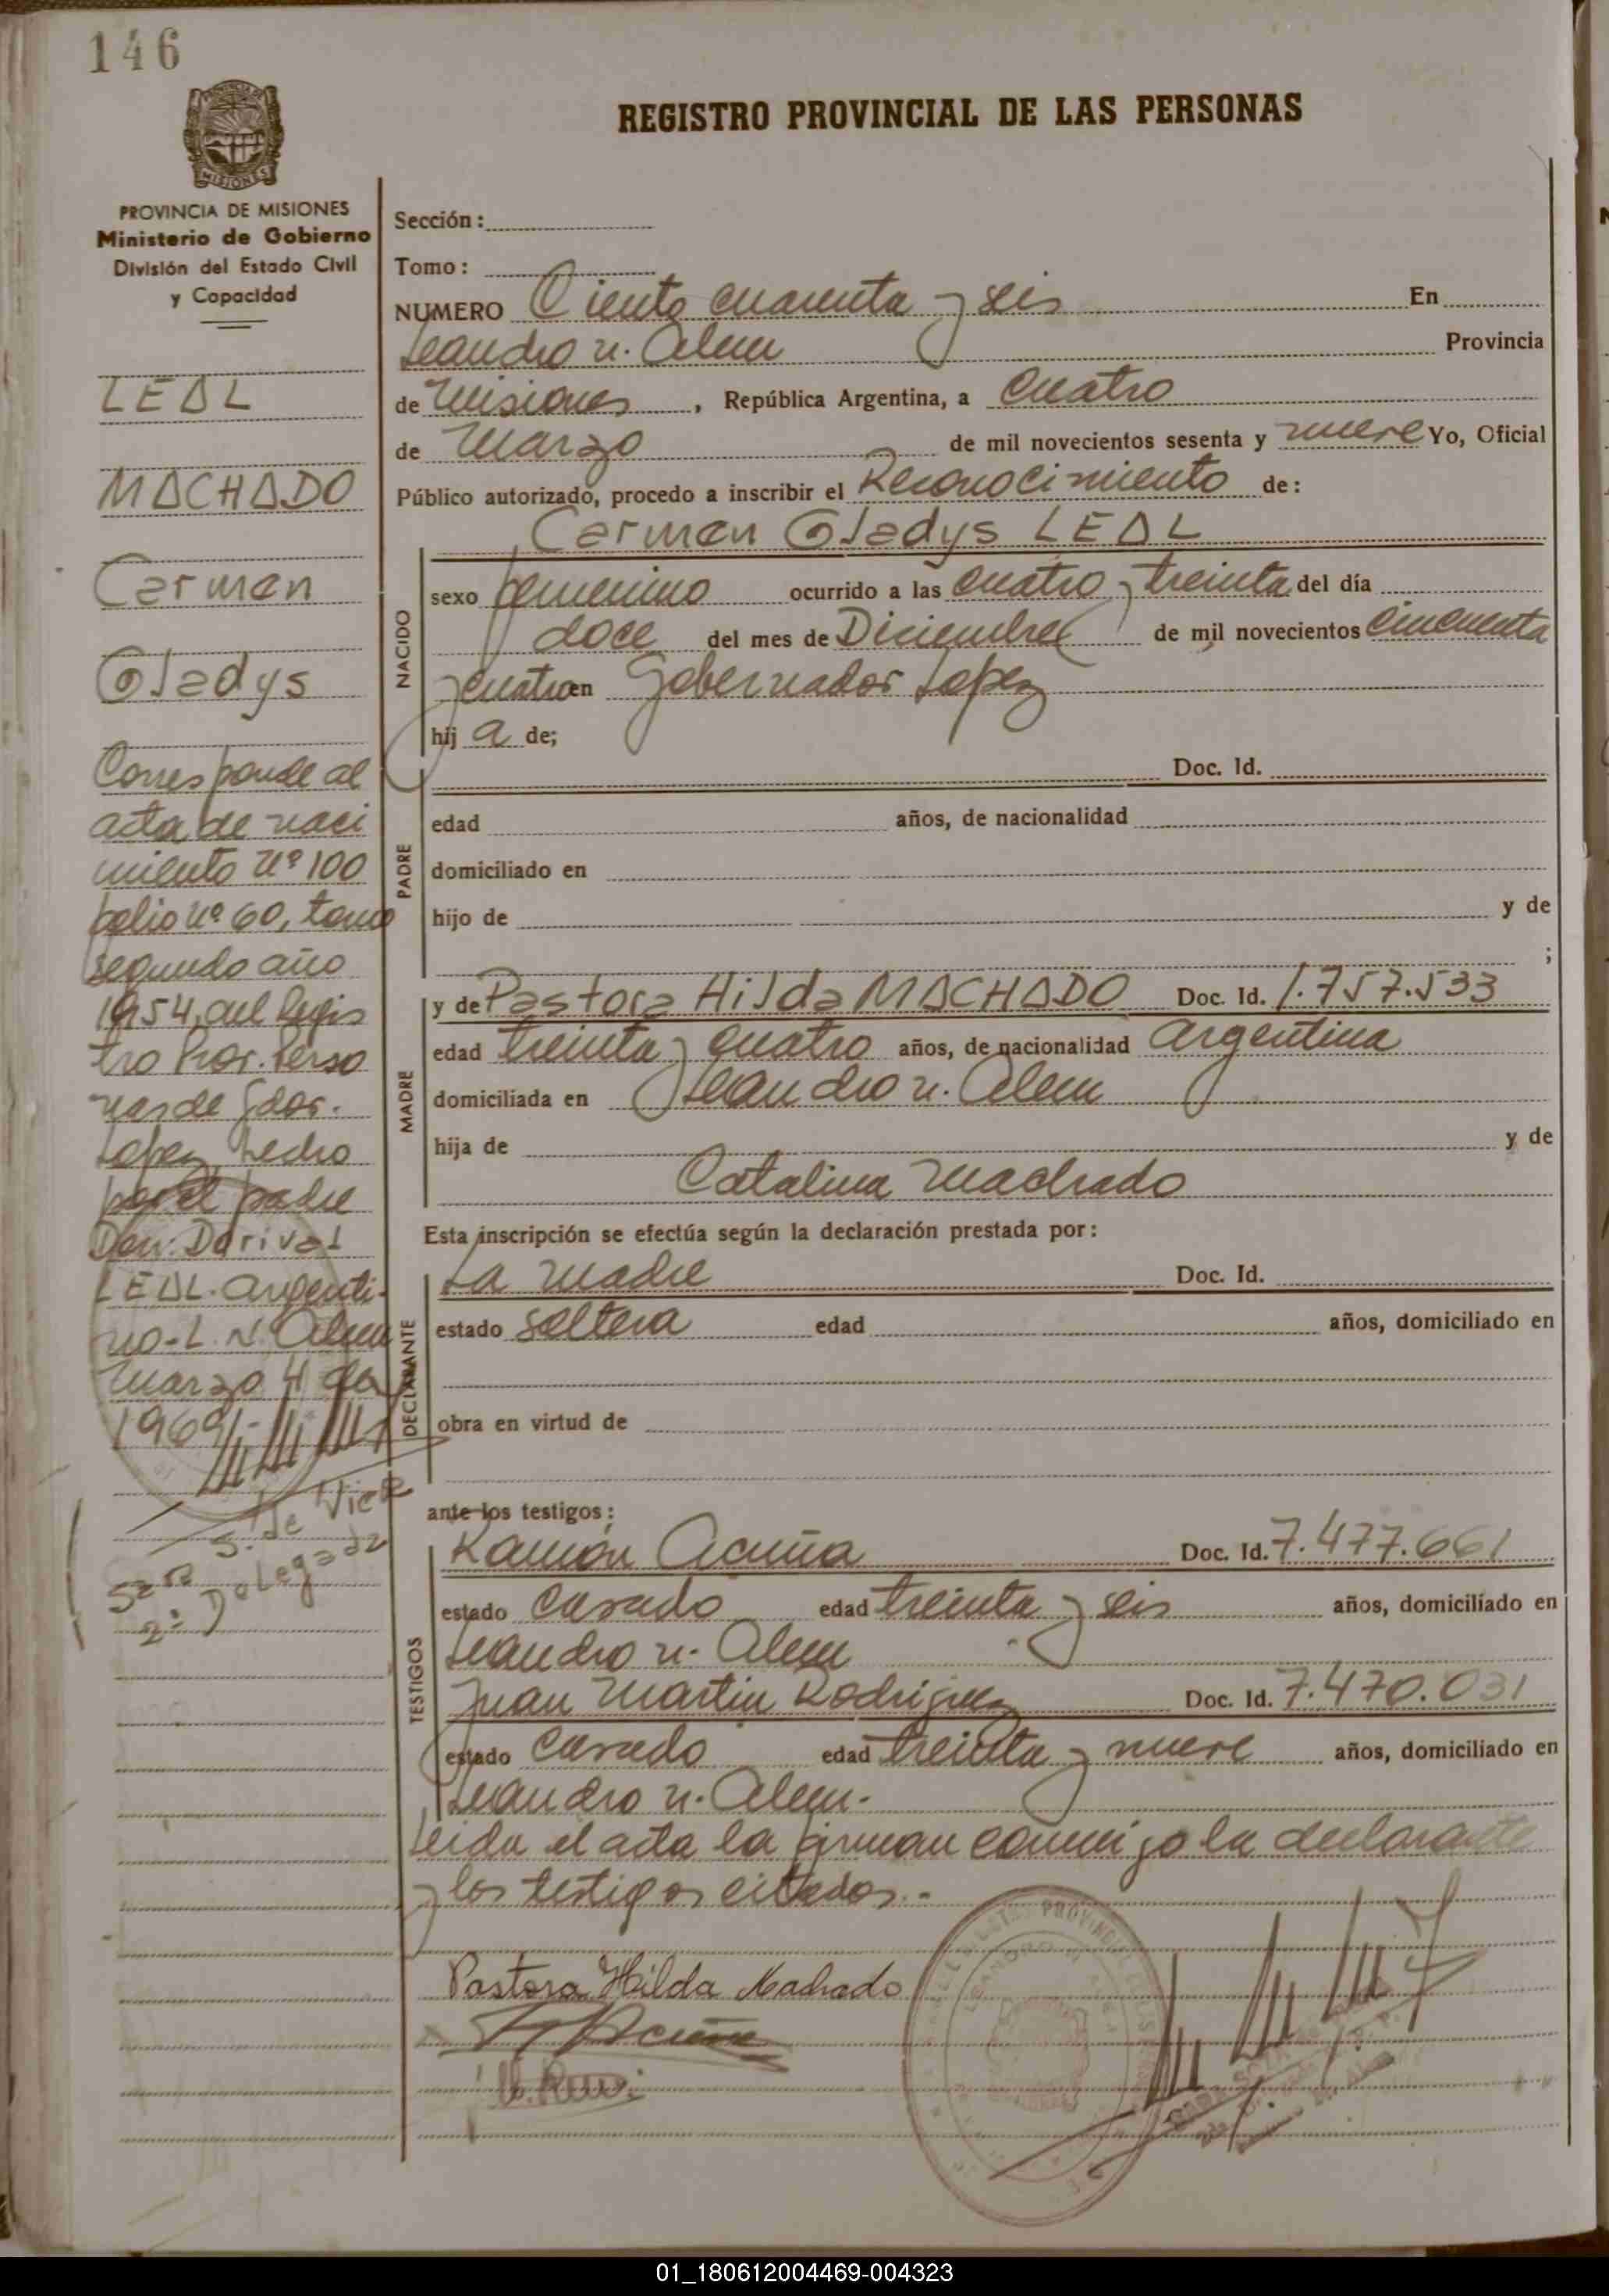 146
REGISTRO PROVINCIAL DE LAS PERSONAS
MISIONES
PROVINCIA DE MISIONES
Ministerio de Gobierno
División del Estado Civil
y Capacidad
LEAL
MACHADO
Carmen
Gladys
Corresponde al
acta de naci
miento Nº 100
folio Nº 60, tomo
segundo año
1954, del Regis
tro Prov. Perso
nas de Gdor.
Lopez, hecho
por el padre
Don: Dorival
LEAL. Argenti-
no - L. N. Alem
Marzo 4 de
1969/-
Sara S. de Vier
2ª Delegada
Sección:
Tomo:
NUMERO Ciento cuarenta y seis En
Leandro N. Alem Provincia
de Misiones, República Argentina, a Cuatro
de Marzo de mil novecientos sesenta y nueve Yo, Oficial
Público autorizado, procedo a inscribir el Reconocimiento de:
Carmen Gladys LEAL
NACIDO
sexo femenino ocurrido a las cuatro y treinta del día
doce del mes de Diciembre de mil novecientos cincuenta
y cuatro en Gobernador Lopez
hij a de;
PADRE
Doc. Id.
edad años, de nacionalidad
domiciliado en
hijo de y de
;
MADRE
y de Pastora Hilda MACHADO Doc. Id. 1.757.533
edad treinta y cuatro años, de nacionalidad Argentina
domiciliada en Leandro N. Alem
hija de y de
Catalina Machado
Esta inscripción se efectúa según la declaración prestada por:
DECLARANTE
La Madre Doc. Id.
estado soltera edad años, domiciliado en
obra en virtud de
ante los testigos:
TESTIGOS
Ramón Acuña Doc. Id. 7.477.661
estado casado edad treinta y seis años, domiciliado en
Leandro N. Alem
Juan Martin Rodriguez Doc. Id. 7.470.031
estado casado edad treinta y nueve años, domiciliado en
Leandro N. Alem.
Leida el acta la firman conmigo la declarante
y los testigos citados.-
Pastora Hilda Machado
Acuña
01_180612004469-004323